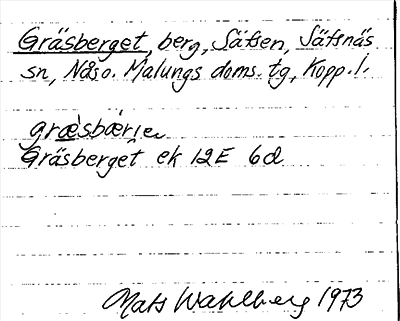 Gräsberget, berg, Säfsen, Säfsnäs
sn, Nås o. Malungs doms. tg, Kopp. l.
græ̀sbær̨ιe
Gräsberget ek 12E 6d
Mats Wahlberg 1973